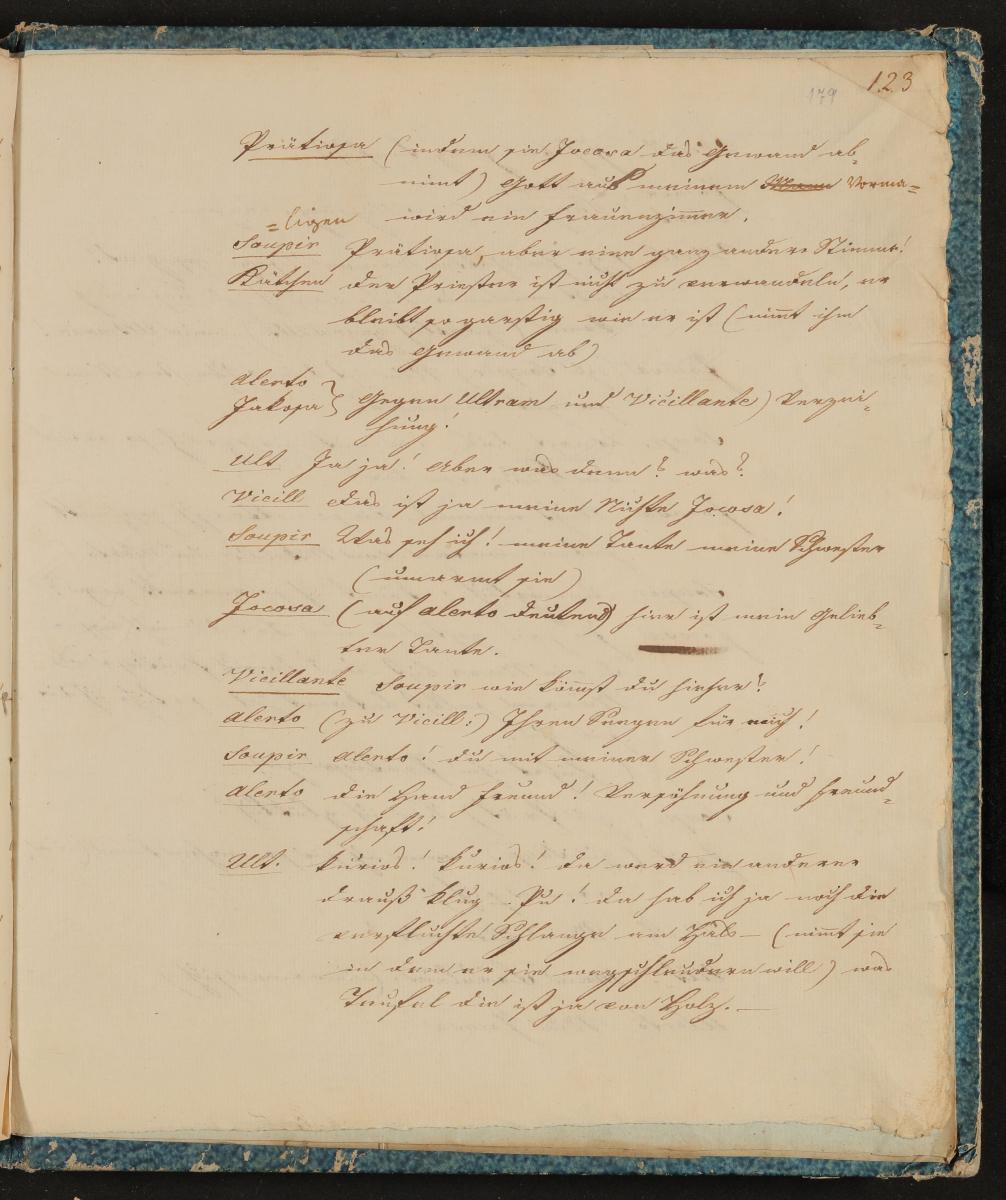 123
179
Prätiosa (indem sie Jocosa das Gewand ab-
nimt) Gott aus meinem Mann Vorma=
=ligen wird ein Frauenzimmer.
Soupir Prätiosa, aber eine ganz andere Stimme!
Kätchen Der Priester ist nicht zu verwandeln, er
bleibt so garstig wie er ist (nimmt ihm
das Gewand ab)
Alerto
Jakosa } Gegen Ultram und Vieillante) Verzei-
hung!
Ult Ja ja! Aber was denn? was?
Vieill das ist ja meine Nichte Jocosa!
Soupir Was seh ich! meine Tante meine Schwester
(umarmt sie)
Jocosa (auf Alerto deutend) hier ist mein Gelieb-
ter Tante.
Vieillante Soupir wie kömst du hieher?
Alerto (zu Vieill:) Ihren Seegen für mich!
Soupir Alerto! du mit meiner Schwester!
Alerto die Hand Freund! Versöhnung und Freund-
schaft!
Ult. Kurios! Kurios! da werd ein anderer
drauß klug – Pu! da hab ich ja noch die
verfluchte Schlange am Hals – (nimt sie
in dem er sie wegschleudern will) was
Teufel die ist ja von Holz. –